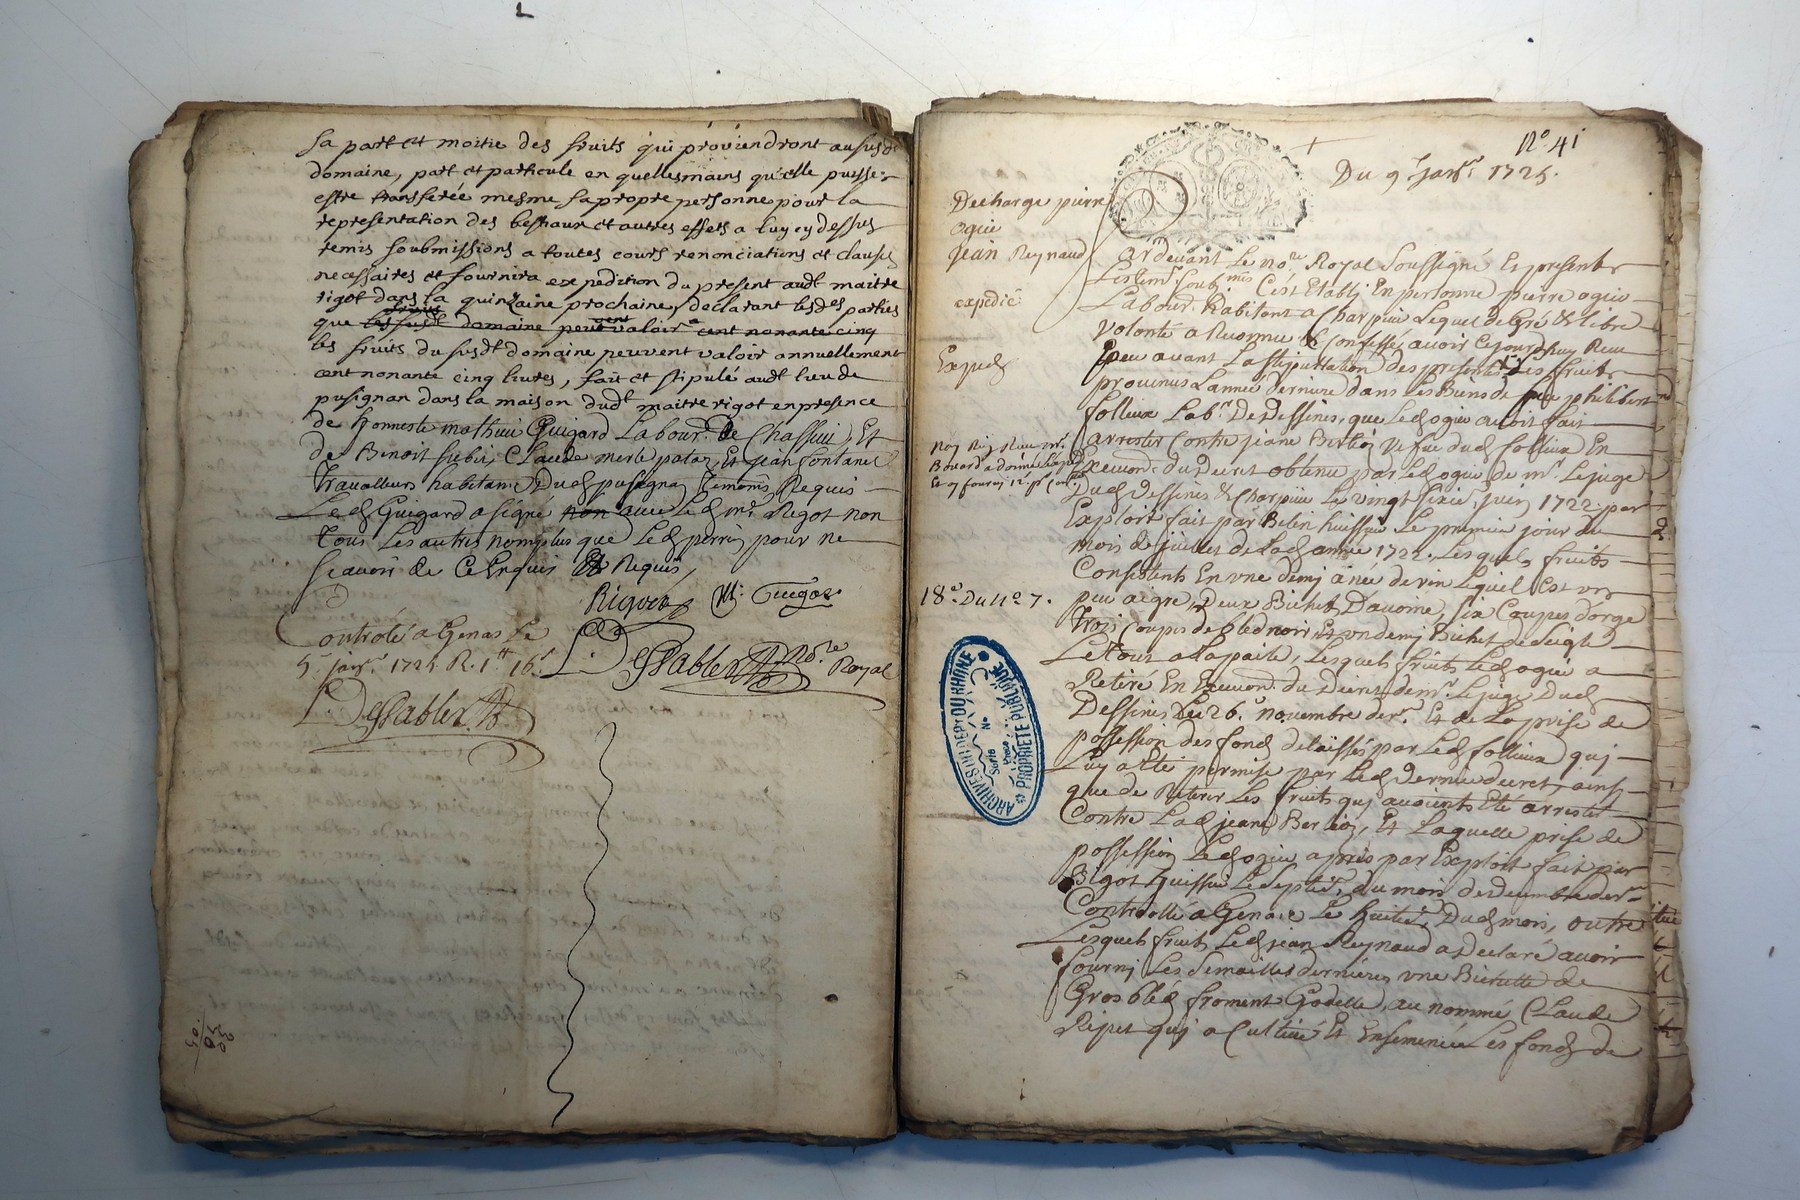 sa part et moitie des fruits qui proviendront au susd.
domaine, part et particule en quelles mains qu'elle puisse
estre transferée mesme sa propre personne pour la
representation des bestiaux et autres effets a luy cy dessus
remis soubmissions a toutes cours renonciations et clauses
necessaires et fournira expedition du present audt maitre
rigot dans la quinzaine prochaine, declarant lesdes parties
que domaine valoir cent nonante cinq
les fruits du susdt domaine peuvent valoir annuellement
cent nonante cinq livres, fait et stipulé audt lieu de
pusignan dans la maison dudt maitre rigot en presence
de honneste mathieu Guigard Labour. de Chassieu, Et
de Benoit Claude merle Et jean fontanel
Travailleurs habitans Dud pusignan Temoins Requis
Led Guigard a signé non avec led mr. Rigot non
Tous Les autres nomplus que Led perrin pour ne
scavoir de ce Enquis Et Requis,
Rigot M. Guigar
Controlé a Genas Le
5 janr. 1725 R. 1 tt 16 s
Dessablet No.re Royal
Dessablet
N° 41
Du 9 Janr. 1725.
Decharge pierre
ogier
jean Reynaud
expedié
Exped
18e. Du N°. 7.
ARCHIVES DU DEPt DU RHÔNE
Serie
No
PROPRIÉTÉ PUBLIQUE
ardevant Le nore Royal Soussigné Et presents
Les tem. C'est Etably En personne pierre ogier
Labour. habitant a Charpieu Lequel de Gré & Libre
volonté a Reconnu & Confessé avoir Cejourdhuy Receu
peu avant La stipullation des presentes Les fruits
provenus L'année derniere dans Les Biens de philibert
follieux Labr. De Dessines, que Led ogier avoit fait
arrester Contre jeane Berlioz vefve dud follieux En
Execuon. du Decret obtenu par Led ogier de mr. Lejuge
Dud Dessines & Charpieu Le vingt sixie. juin 1722 par
Exploit fait par Belin huissier Le premier jour du
mois de juillet de Lad année 1722. Lesquels fruits
Consistants En une demj anée de vin Lequel Est un
peu aigre, Deux Bichets D'avoine, six Coupes d'orge
Trois coupes de bled noir Et un demj Bichet de seigle
Le tout a La paille, Lesquels fruits Led ogier a
Retiré En Execuon. du Decret de mr. Lejuge Dud
Dessines Le 26e. novembre der. Et de La prise de
possession des fonds delaissés par Led follieux quj
Luy a Eté permise par Led Dernier decret, ainsy
que de Retirer Les fruits quj avoients Eté arrestés
Contre Lad jeane Berlioz, Et Laquelle prise de
possession Led ogier a pris par Exploit fait par
Bigot huissier Le Septie. du mois de decembre der
Controllé a Genas Le huitie. Dud mois, outre
Lesquels fruits Led jean Reynaud a Declaré avoir
fourny Les Semailles dernieres une Bichette de
Gros bled froment Godelle, au nommé Claude
Ripet quj a Cultivé Et Ensemencé Les fonds de